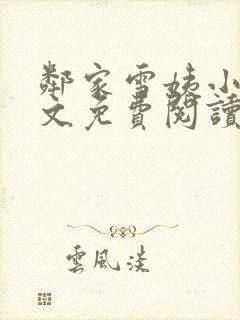 鄰家雪姨小
文免費閱讀
雲風淡